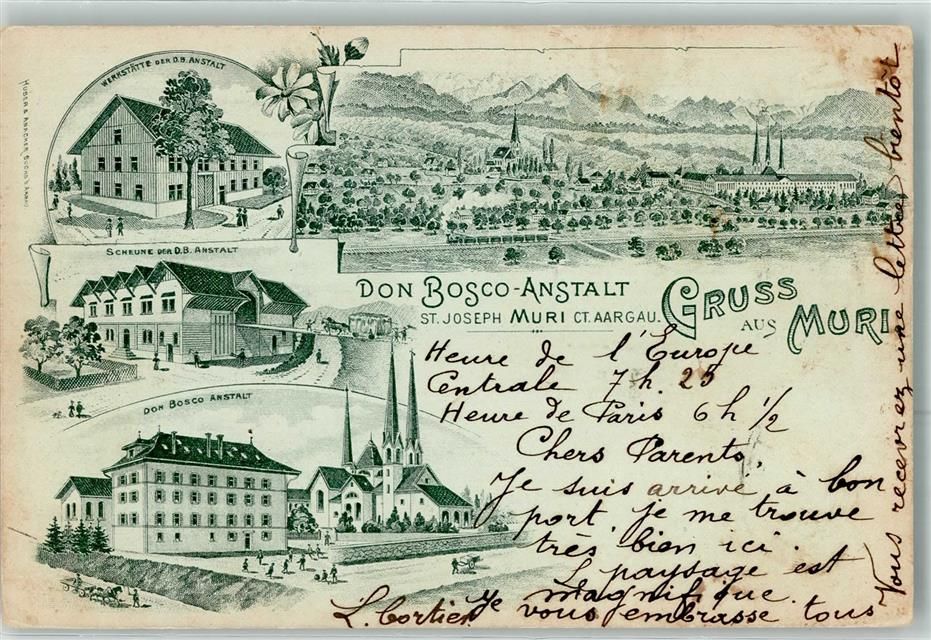 WERKSTÄTTE DER D.B. ANSTALT
SCHEUNE DER D.B. ANSTALT
DON BOSCO ANSTALT
DON BOSCO-ANSTALT
ST. JOSEPH MURI CT. AARGAU.
GRUSS
AUS MURI
Heure de l'Europe
Centrale 7 h. 25
Heure de Paris 6 h 1/2
Chers Parents,
Je suis arrivé à bon
port, je me trouve
très bien ici.
Le paysage est
magnifique.
Je vous embrasse tous
L. Cortier
Vous recevrez une lettre bientôt